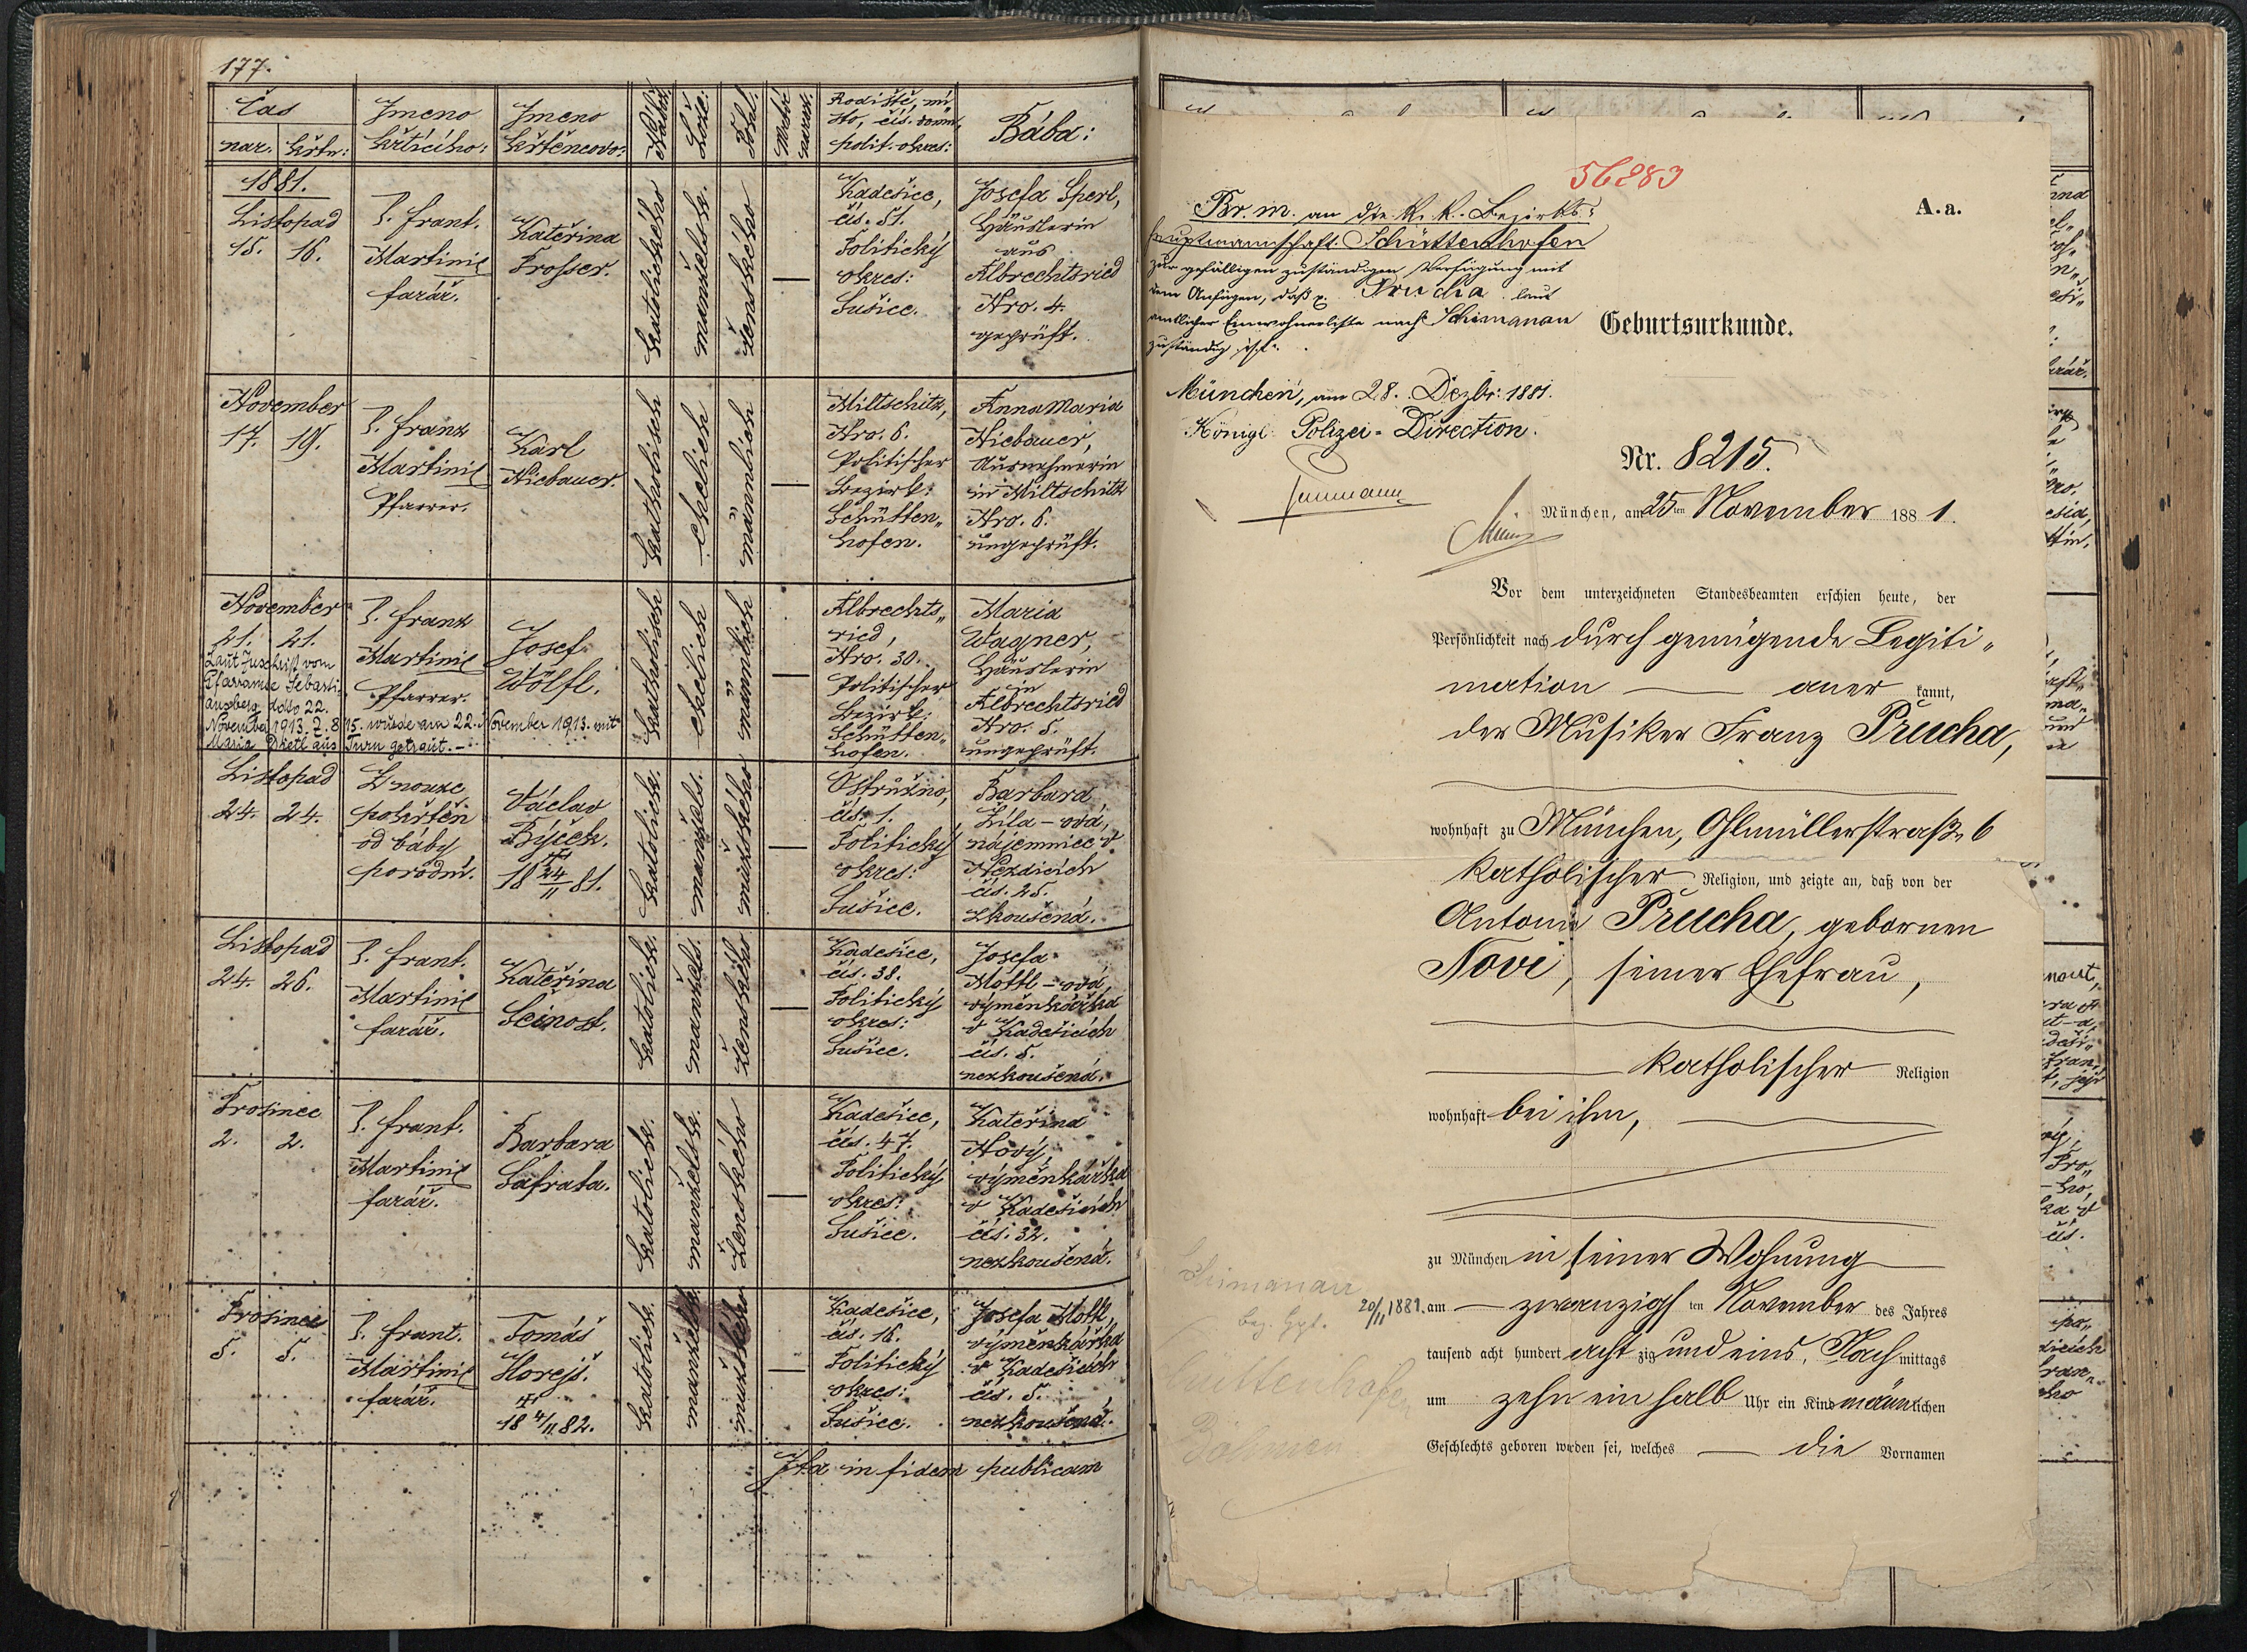 177.
Čas
nar. křtu:
Jmeno
křtícího:
Jmeno
křtěncovo:
Lože:
Pohl.
Rodiště, mí-
sto, čís. domu,
polit. okres:
Bába:
1881.
Listopad
15. 16.
P. Frant.
Martinic
farář.
Kateřina
Prosser.
katolického
manželsk.
ženského
Kadešice,
čís. 51.
Politický
okres:
Sušice.
Josefa Sperl,
Häuslerin
aus
Albrechtsried
Nro. 4.
geprüft.
November
17. 19.
P. Franz
Martinic
Pfarrer.
Karl
Niebauer.
katholisch
ehelich
männlich
Miltschitz,
Nro. 6.
Politischer
Bezirk:
Schütten„
hofen.
Anna Maria
Niebauer,
Ausnehmerin
in Miltschitz
Nro. 6.
ungeprüft.
November
21. 21.
Laut Zuschrift vom
Pfarramte Sebasti-
ansberg ddto 22.
November 1913. Z. 815. wurde am 22. November 1913. mit
Maria aus Turn getraut. –
P. Franz
Martinic
Pfarrer.
Josef
Wölfl.
katholisch
ehelich
männlich
Albrechts„
ried,
Nro. 30.
Politischer
Bezirk:
Schütten„
hofen.
Maria
Wagner,
Häuslerin
in
Albrechtsried
Nro. 5.
ungeprüft.
Listopad
24. 24.
Z nouze
pokřtěn
od báby
porodní.
Václav
Býček.
18 24/11 81.
katolick.
manžels.
mužského
Ostružno,
čís. 1.
Politický
okres:
Sušice.
Barbara
Žila – ová,
nájemnice v
Nezdicích
čís. 25.
zkoušená.
Listopad
24. 26.
P. Frant.
Martinic
farář.
Kateřina
Ščinost.
katolick.
manžels.
ženského
Kadešice,
čís. 38.
Politický
okres:
Sušice.
Josefa
Mottl – ová,
výměnkářka
v Kadešicích
čís. 5.
nezkoušená.
Prosinec
2. 2.
P. Frant.
Martinic
farář.
Barbara
Šafrata.
katolick.
manželsk.
ženského
Kadešice,
čís. 47.
Politický
okres:
Sušice.
Kateřina
Nový,
výměnkářka
v Kadešicích
čís. 32.
nezkoušená.
Prosinec
5. 5.
P. Frant.
Martinic
farář.
Tomáš
Horejš.
18 4/11 82.
katolick.
manželsk.
mužského
Kadešice,
čís. 16.
Politický
okres:
Sušice.
Josefa Mottl,
výměnkářka
v Kadešicích
čís. 5.
nezkoušená.
Ita in fidem publicam
56283
Br. m. an die K. K. Bezirks-
hauptmannschaft Schüttenhofen
zur gefälligen zuständigen Verfügung mit
dem Anfügen, daß p. Prucha laut
amtlicher Einwohnerliste nach Schimanau
zuständig ist.
München, am 28. Dezbr. 1881.
Königl. Polizei-Direction.
A. a.
Geburtsurkunde.
Nr. 8215.
München, am 25ten November 1881.
Vor dem unterzeichneten Standesbeamten erschien heute, der
Persönlichkeit nach durch genügende Legiti„
mation — anerkannt,
der Musiker Franz Prucha,
wohnhaft zu München, Ohlmüllerstraße 6
katholischer Religion, und zeigte an, daß von der
Antonie Prucha, gebornen
Novi, seiner Ehefrau,
katholischer Religion
wohnhaft bei ihm,
zu München in seiner Wohnung
am — zwanzigsten November des Jahres
tausend acht hundert achtzig und eins, Nachmittags
um zehn ein halb Uhr ein Kind männlichen
Geschlechts geboren worden sei, welches — die Vornamen
Schimanau
20/11 1881.
Schüttenhofen
Böhmen